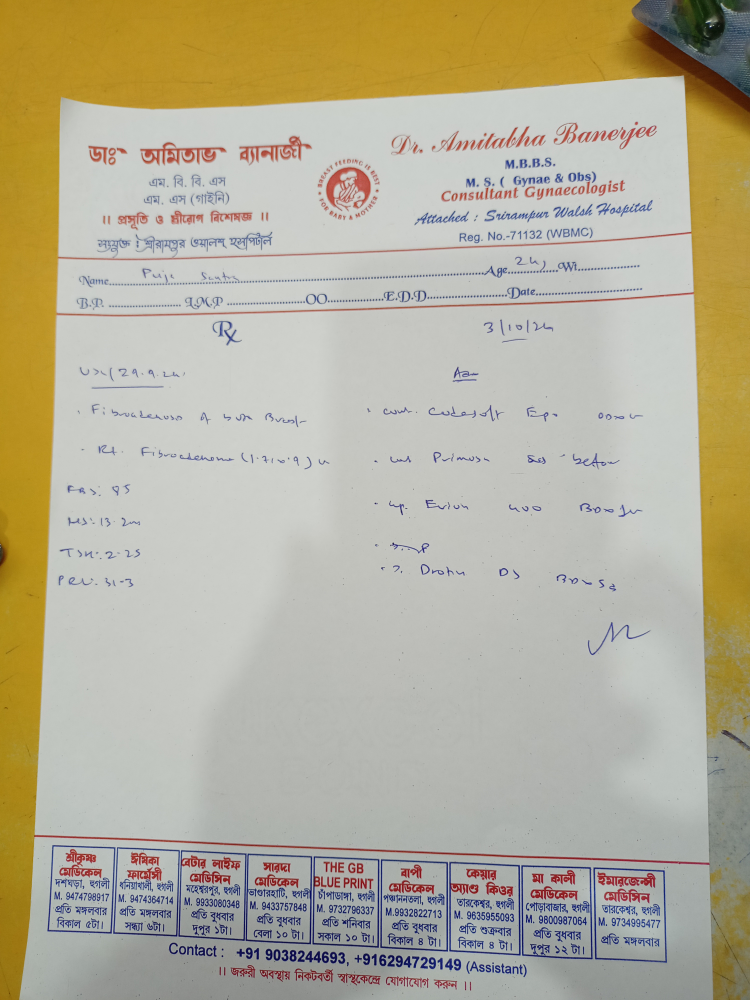 ডাঃ অমিতাভ ব্যানার্জী
এম. বি. বি. এস
এম. এস (গাইনি)
।। প্রসূতি ও স্ত্রীরোগ বিশেষজ্ঞ ।।
সংযুক্ত : শ্রীরামপুর ওয়ালশ হসপিটাল
BREAST FEEDING IS BEST
FOR BABY & MOTHER
Dr. Amitabha Banerjee
M.B.B.S.
M. S. ( Gynae & Obs)
Consultant Gynaecologist
Attached : Srirampur Walsh Hospital
Reg. No.-71132 (WBMC)
Name Age Wi
B.P. L.M.P OO E.D.D Date
Rx
3/10/24
29.9.24
Fibroadenoma
Rt. Fibroadenoma
FBS: 85
TSH: 2.25
PRL: 31.3
Primosa
Evion 400
Drotin DS
শ্রীকৃষ্ণ মেডিকেল
দশঘড়া, হুগলী
M. 9474798917
প্রতি মঙ্গলবার
বিকাল ৫টা।
ঈমিকা ফার্মেসী
ধনিয়াখালী, হুগলী
M. 9474364714
প্রতি মঙ্গলবার
সন্ধ্যা ৬টা।
বেটার লাইফ মেডিসিন
মহেশ্বরপুর, হুগলী
M. 9933080348
প্রতি বুধবার
দুপুর ১টা।
সারদা মেডিকেল
ভাণ্ডারহাটি, হুগলী
M. 9433757848
প্রতি বুধবার
বেলা ১০ টা।
THE GB
BLUE PRINT
চাঁপাডাঙ্গা, হুগলী
M. 9732796337
প্রতি শনিবার
সকাল ১০ টা।
বাপী মেডিকেল
পঞ্চাননতলা, হুগলী
M.9932822713
প্রতি বুধবার
বিকাল ৪ টা।
কেয়ার অ্যাণ্ড কিওর
তারকেশ্বর, হুগলী
M. 9635955093
প্রতি শুক্রবার
বিকাল ৪ টা।
মা কালী মেডিকেল
পোড়াবাজার, হুগলী
M. 9800987064
প্রতি বুধবার
দুপুর ১২ টা।
ইমারজেন্সী মেডিসিন
তারকেশ্বর, হুগলী
M. 9734995477
প্রতি মঙ্গলবার
Contact : +91 9038244693, +916294729149 (Assistant)
।। জরুরী অবস্থায় নিকটবর্তী স্বাস্থ্যকেন্দ্রে যোগাযোগ করুন ।।